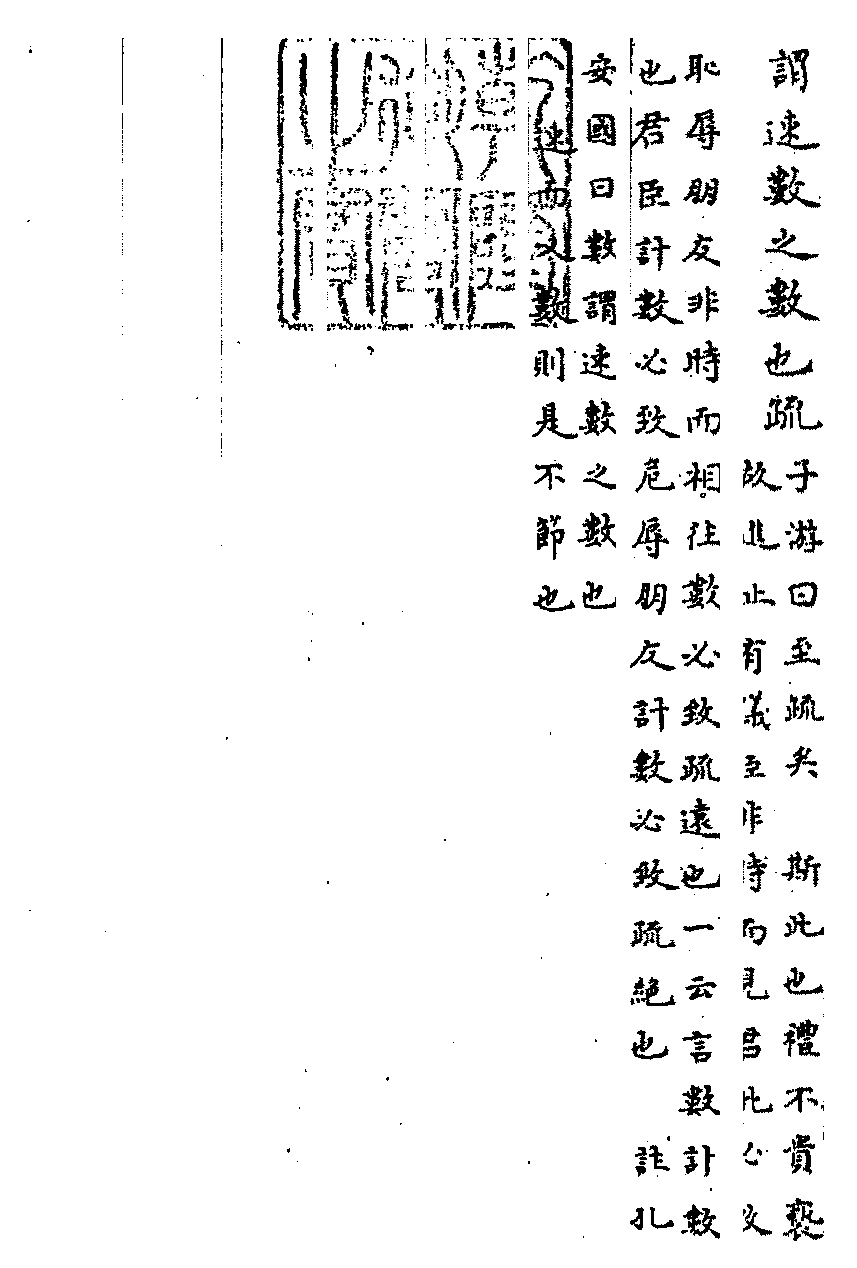 謂速數之數也疏
子游曰至疏矣　斯此也禮不貴褻
故進止有儀臣非時而見君此必致
恥辱朋友非時而相往數必致疏遠也一云言數計數
也君臣計數必致危辱朋友計數必致疏絕也　註孔
安國曰數謂速數之數也
速而又數則是不節也